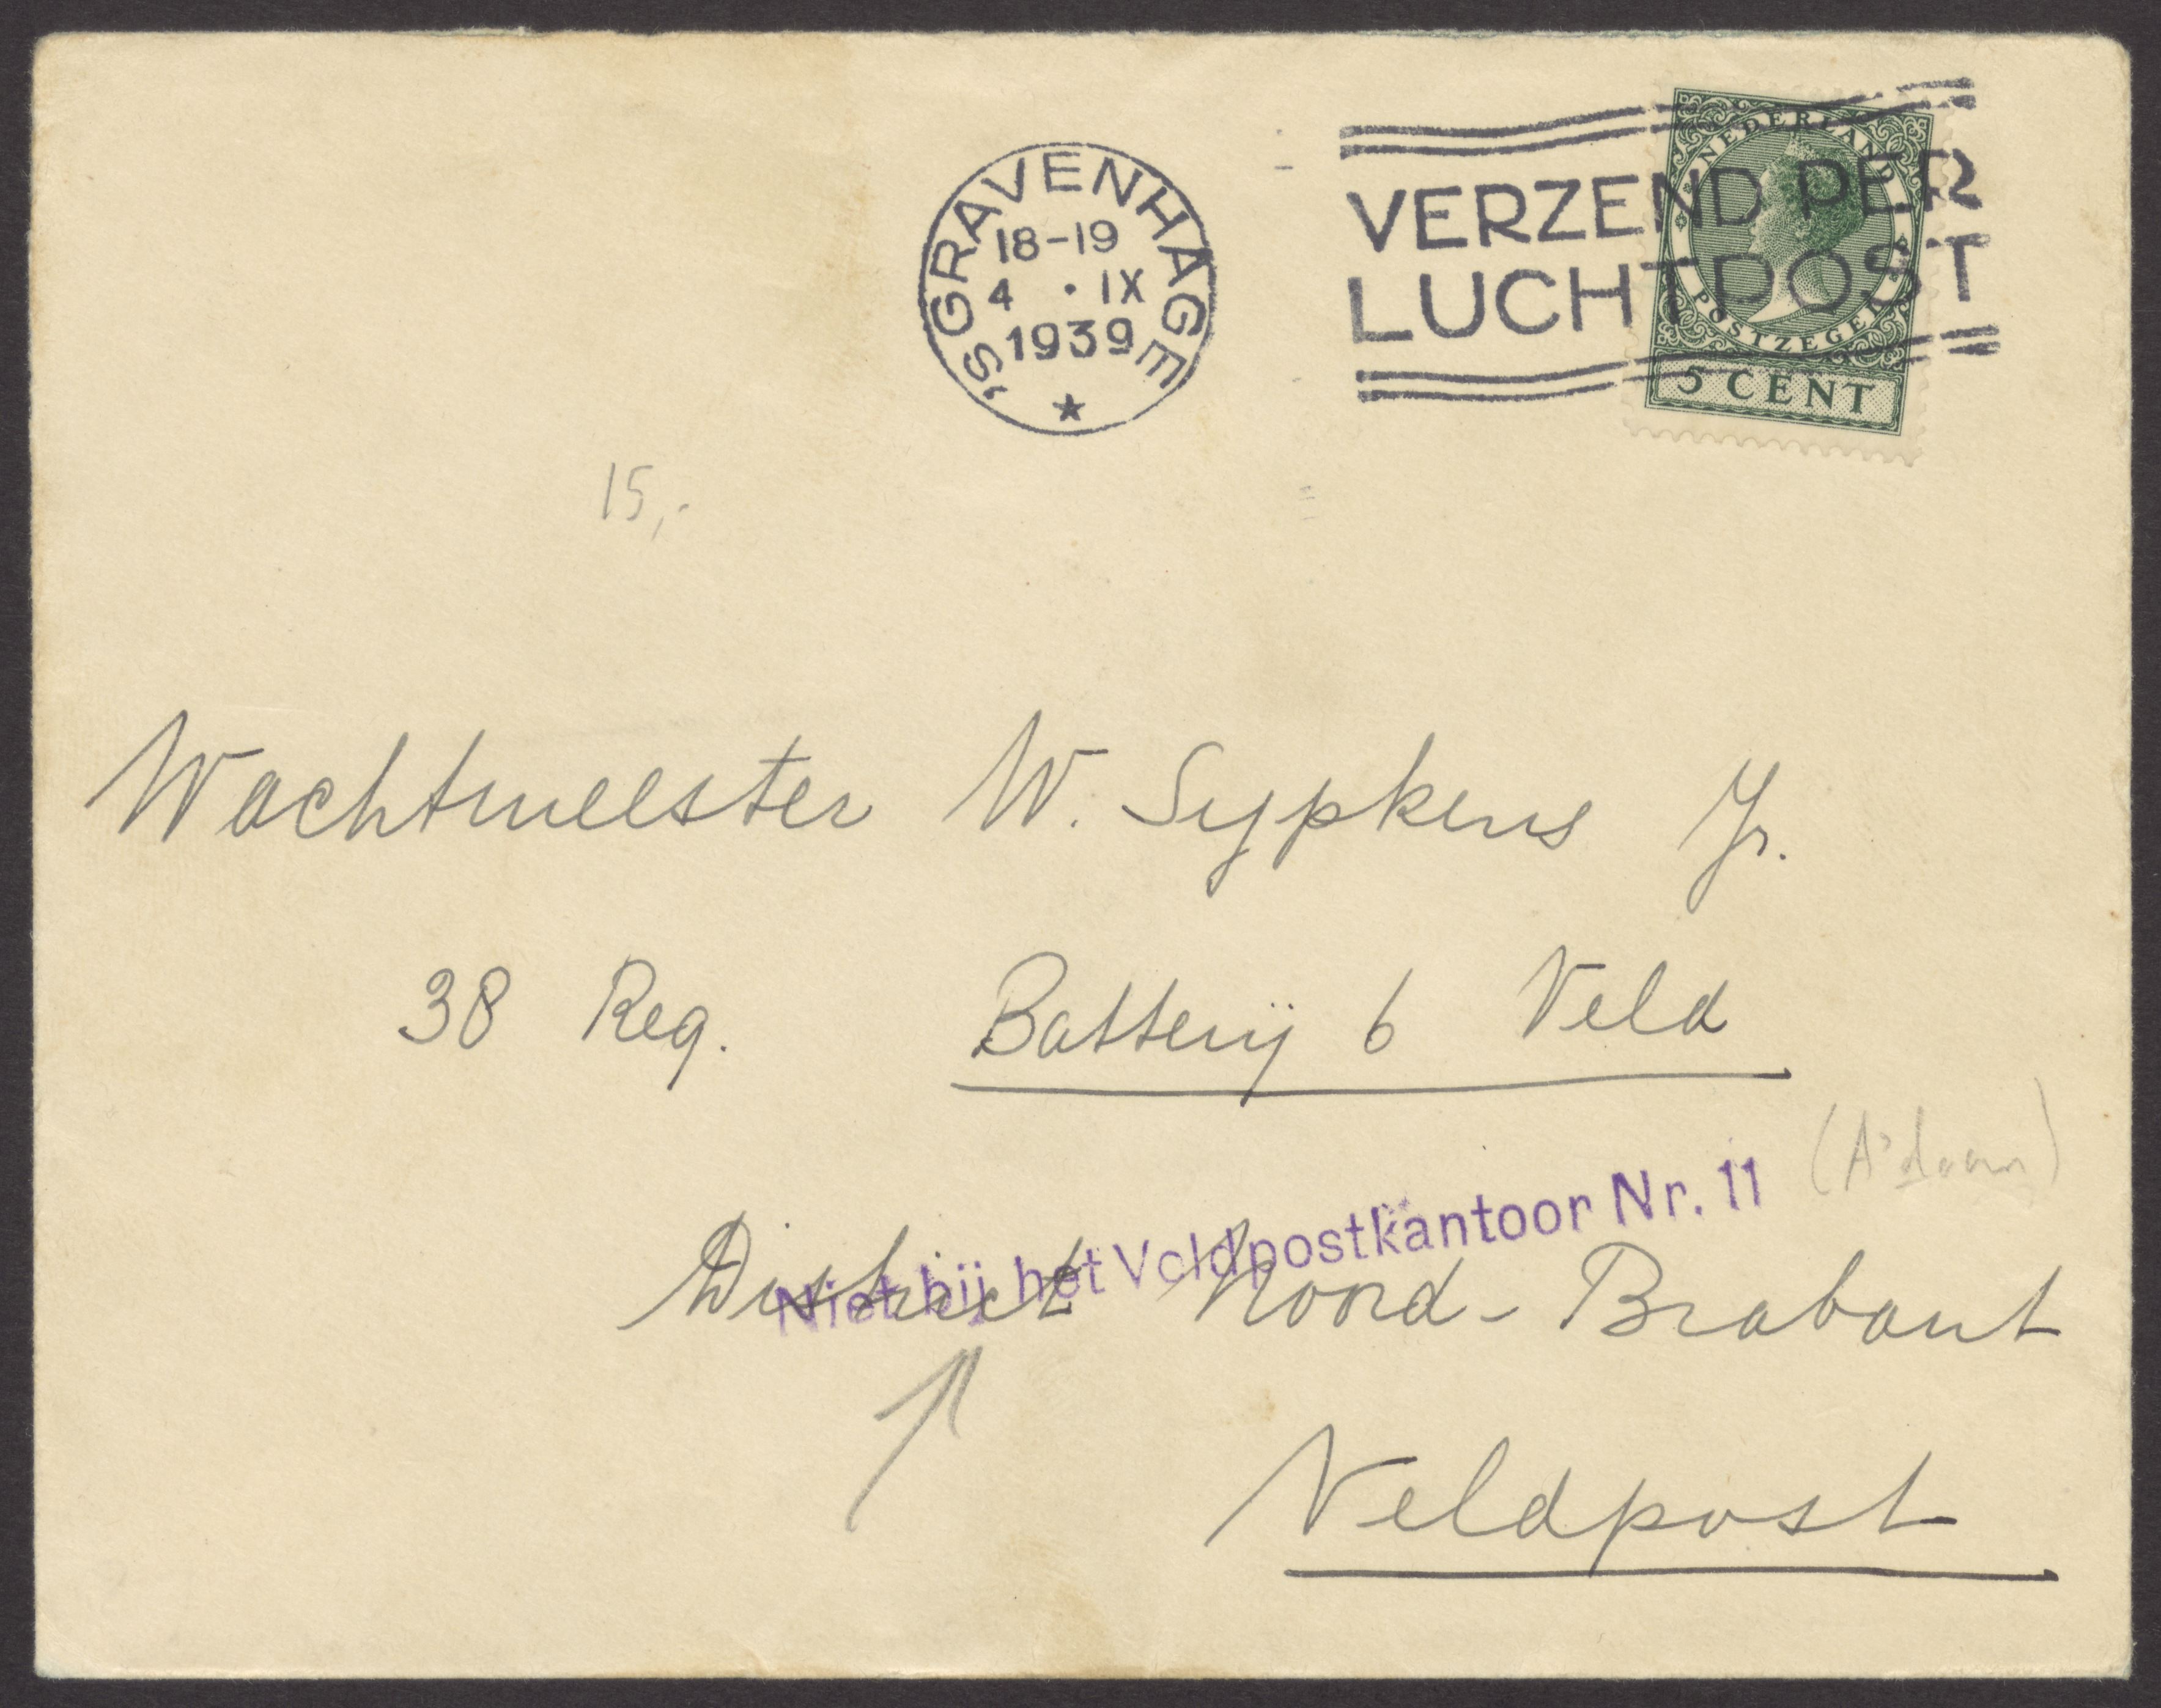 'SGRAVENHAGE
18-19
4 · IX
1939
VERZEND PER
LUCHTPOST
NEDERLAND
POSTZEGEL
5 CENT
15,-
Wachtmeester W. Sypkens Jr.
38 Reg. Batterij 6 Veld
(A'dam)
Niet bij het Veldpostkantoor Nr. 11
District Noord-Brabant
Veldpost